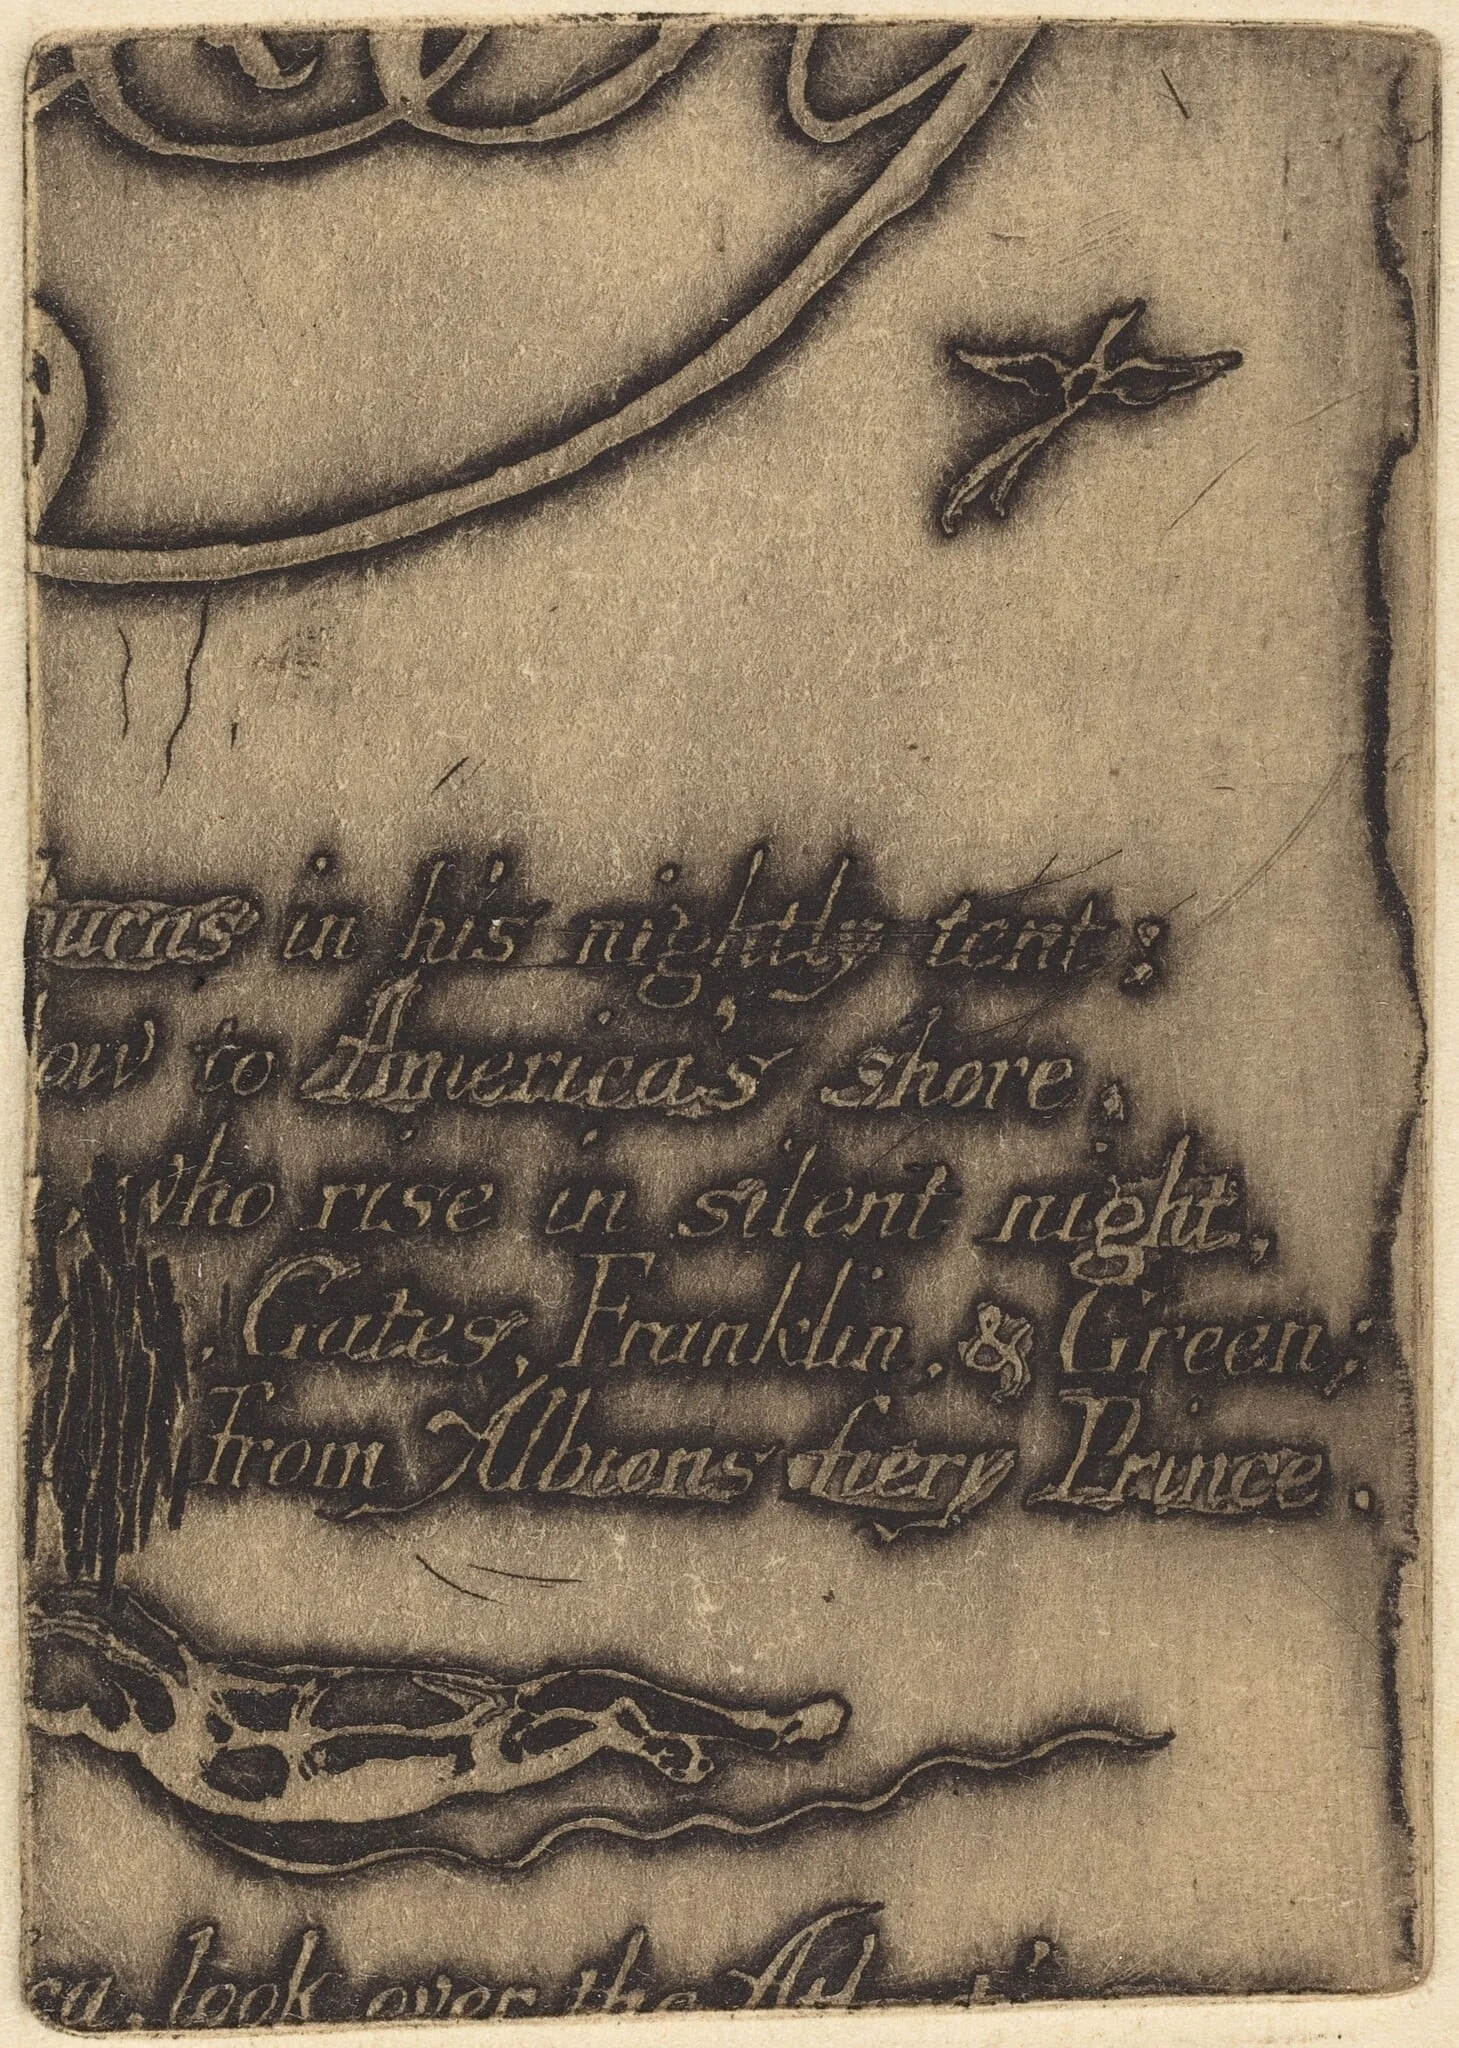 burns in his nightly tent:
low to America's shore.
, who rise in silent night,
, Gates, Franklin, & Green;
From Albions fiery Prince.
ca, look over the Atlant